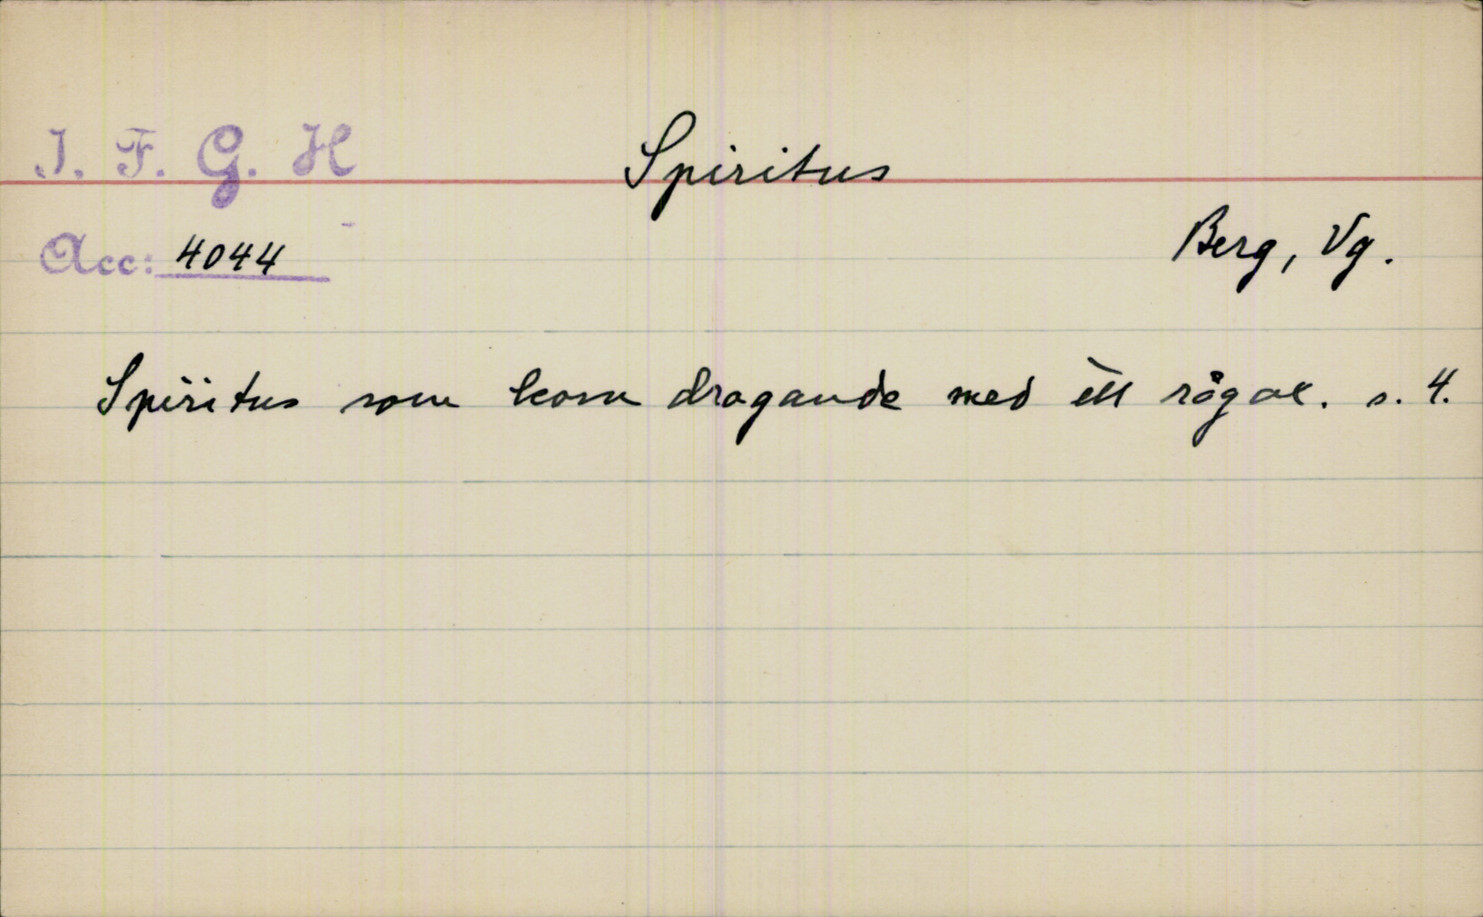 I. F. G. H
Spiritus
Acc: 4044
Berg, Vg.
Spiritus som kom dragande med ett rågax. s. 4.